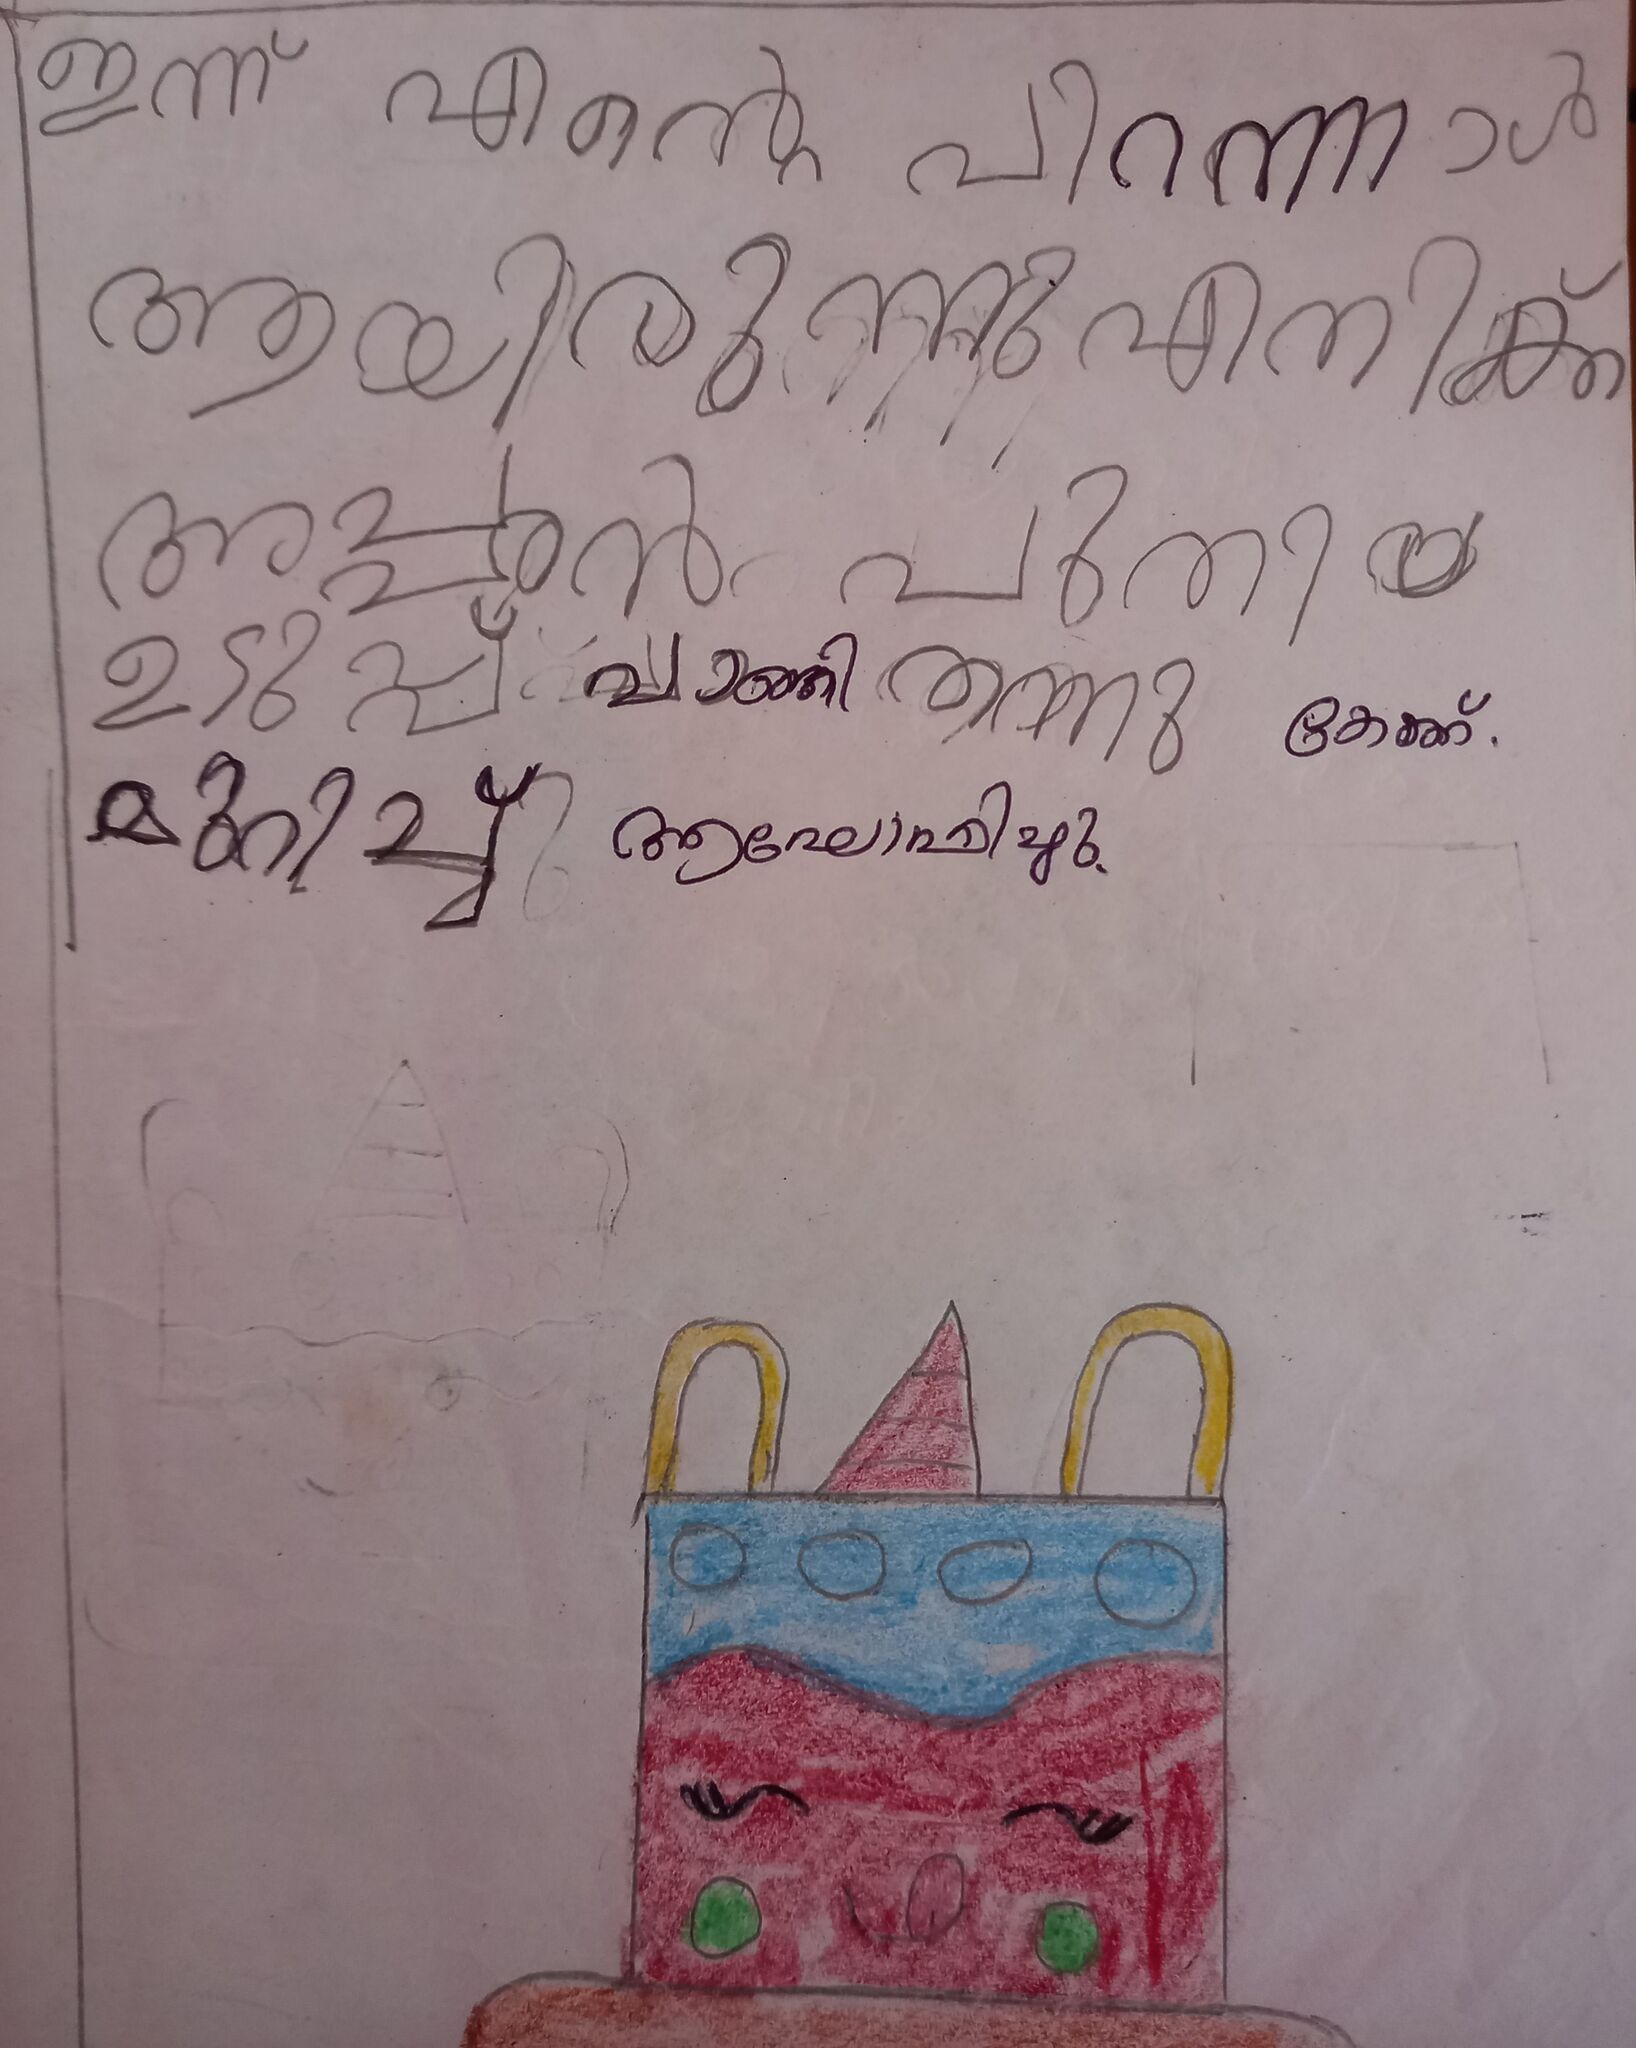 ഇന്ന് എന്റെ പിറന്നാൾ
ആയിരുന്നു എനിക്ക്
അപ്പൻ പുതിയ
ഉടുപ്പ് വാങ്ങി തന്നു കേക്ക്.
മുറിച്ച് ആഘോഷിച്ചു.